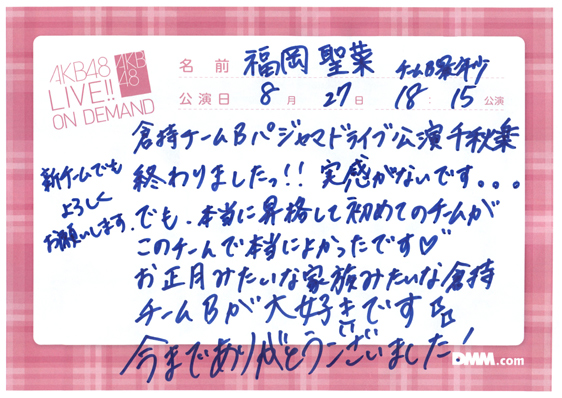 AKB48
LIVE!!
ON DEMAND
AKB
48
名前 福岡 聖菜 チームB最年少
公演日 8月 27日 18:15公演
倉持チームBパジャマドライブ公演千秋楽
終わりましたっ!! 実感がないです。。。
でも、本当に昇格して初めてのチームが
このチームで本当によかったです♡
お正月みたいな家族みたいな倉持
チームBが大好きです
今までありがとうございました!
新チームでも
よろしく
お願いします.
DMM.com